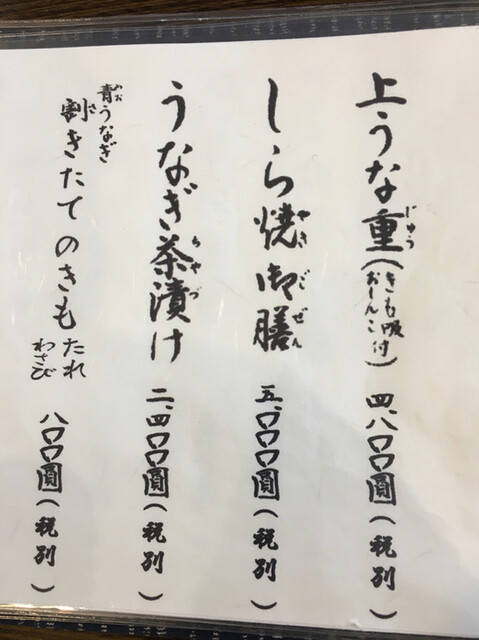 上うな重(きも吸付おしんこ) 四、八〇〇圓(税別)
じゅう
しら焼御膳 五、〇〇〇圓(税別)
やきごぜん
うなぎ茶漬け 二、四〇〇圓(税別)
ちゃづ
青うなぎ
割きたてのきも たれ わさび 八〇〇圓(税別)
さ